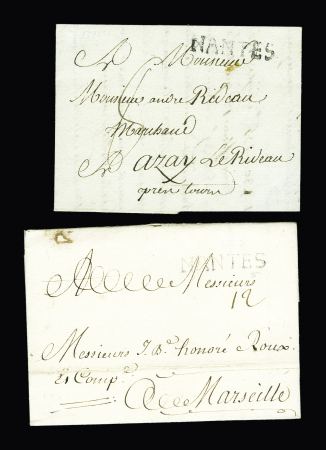 NANTES
A Monsieur
Monsieur andre Rideau
Marchand
A azay Le Rideau
pres tours
NANTES
A Messieurs
12
Messieurs J. Bte. honoré Roux
Et Compe.
A Marseille